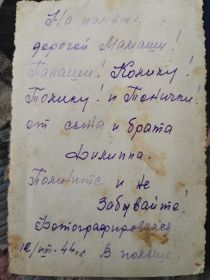 На память
дорогой Мамаши!
Папаши! Колику!
Толику! и Тонички!
от сына и брата
Филиппа.
Помните и не
Забывайте!
Фотографировался
12/VIII-44 г. В Польше.